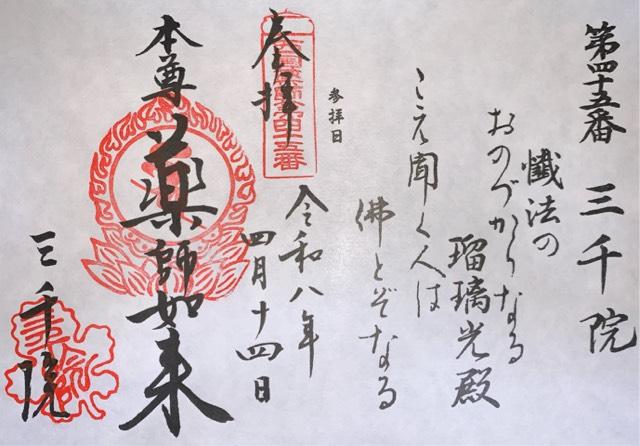 第四十五番 三千院
懺法の
おのづからなる
瑠璃光殿
こえ聞く人は
佛とぞなる
参拝日
令和八年
四月十四日
奉拝
西国薬師第四十五番
本尊 薬師如来
三千院